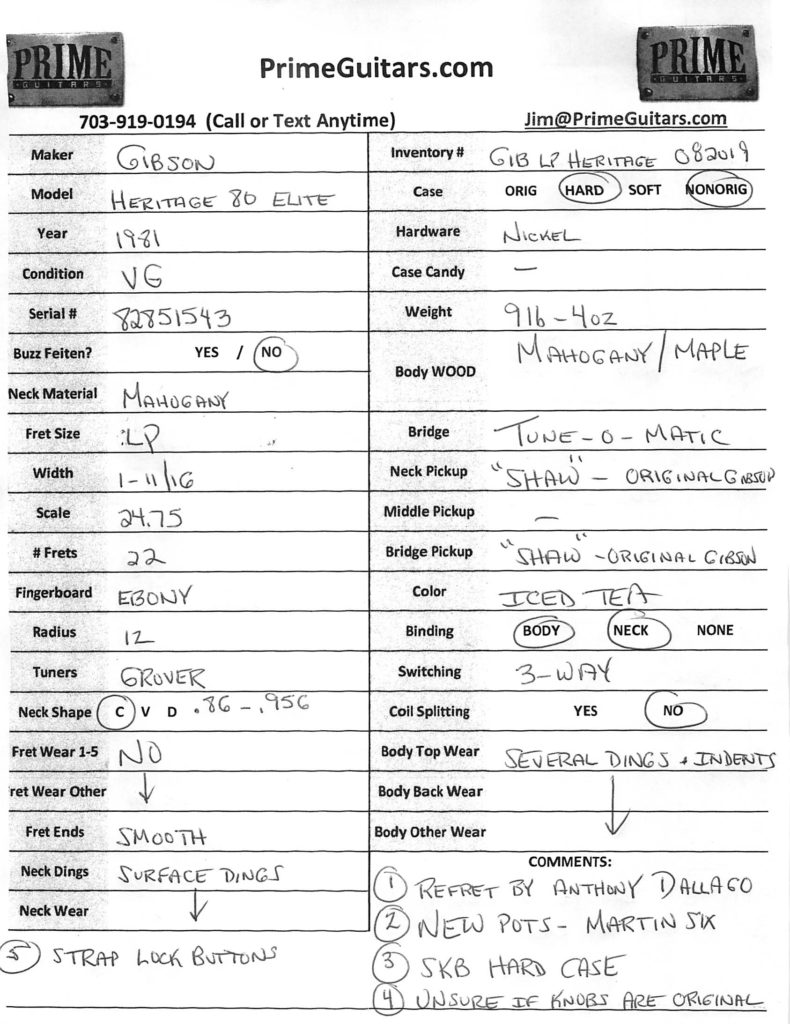 PRIME
GUITARS
PrimeGuitars.com
PRIME
GUITARS
703-919-0194 (Call or Text Anytime)
Jim@PrimeGuitars.com
Maker GIBSON
Model HERITAGE 80 ELITE
Year 1981
Condition VG
Serial # 82851543
Buzz Feiten? YES / NO
Neck Material MAHOGANY
Fret Size LP
Width 1-11/16
Scale 24.75
# Frets 22
Fingerboard EBONY
Radius 12
Tuners GROVER
Neck Shape C V D .86 - .956
Fret Wear 1-5 NO
ret Wear Other ↓
Fret Ends SMOOTH
Neck Dings SURFACE DINGS
Neck Wear ↓
5 STRAP LOCK BUTTONS
Inventory # GIB LP HERITAGE 082019
Case ORIG HARD SOFT NONORIG
Hardware NICKEL
Case Candy —
Weight 9lb - 4oz
Body WOOD MAHOGANY/MAPLE
Bridge TUNE-O-MATIC
Neck Pickup "SHAW" - ORIGINAL GIBSON
Middle Pickup —
Bridge Pickup "SHAW" - ORIGINAL GIBSON
Color ICED TEA
Binding BODY NECK NONE
Switching 3-WAY
Coil Splitting YES NO
Body Top Wear SEVERAL DINGS + INDENTS
Body Back Wear
Body Other Wear ↓
COMMENTS:
1 REFRET BY ANTHONY DALLAGO
2 NEW POTS - MARTIN SIX
3 SKB HARD CASE
4 UNSURE IF KNOBS ARE ORIGINAL